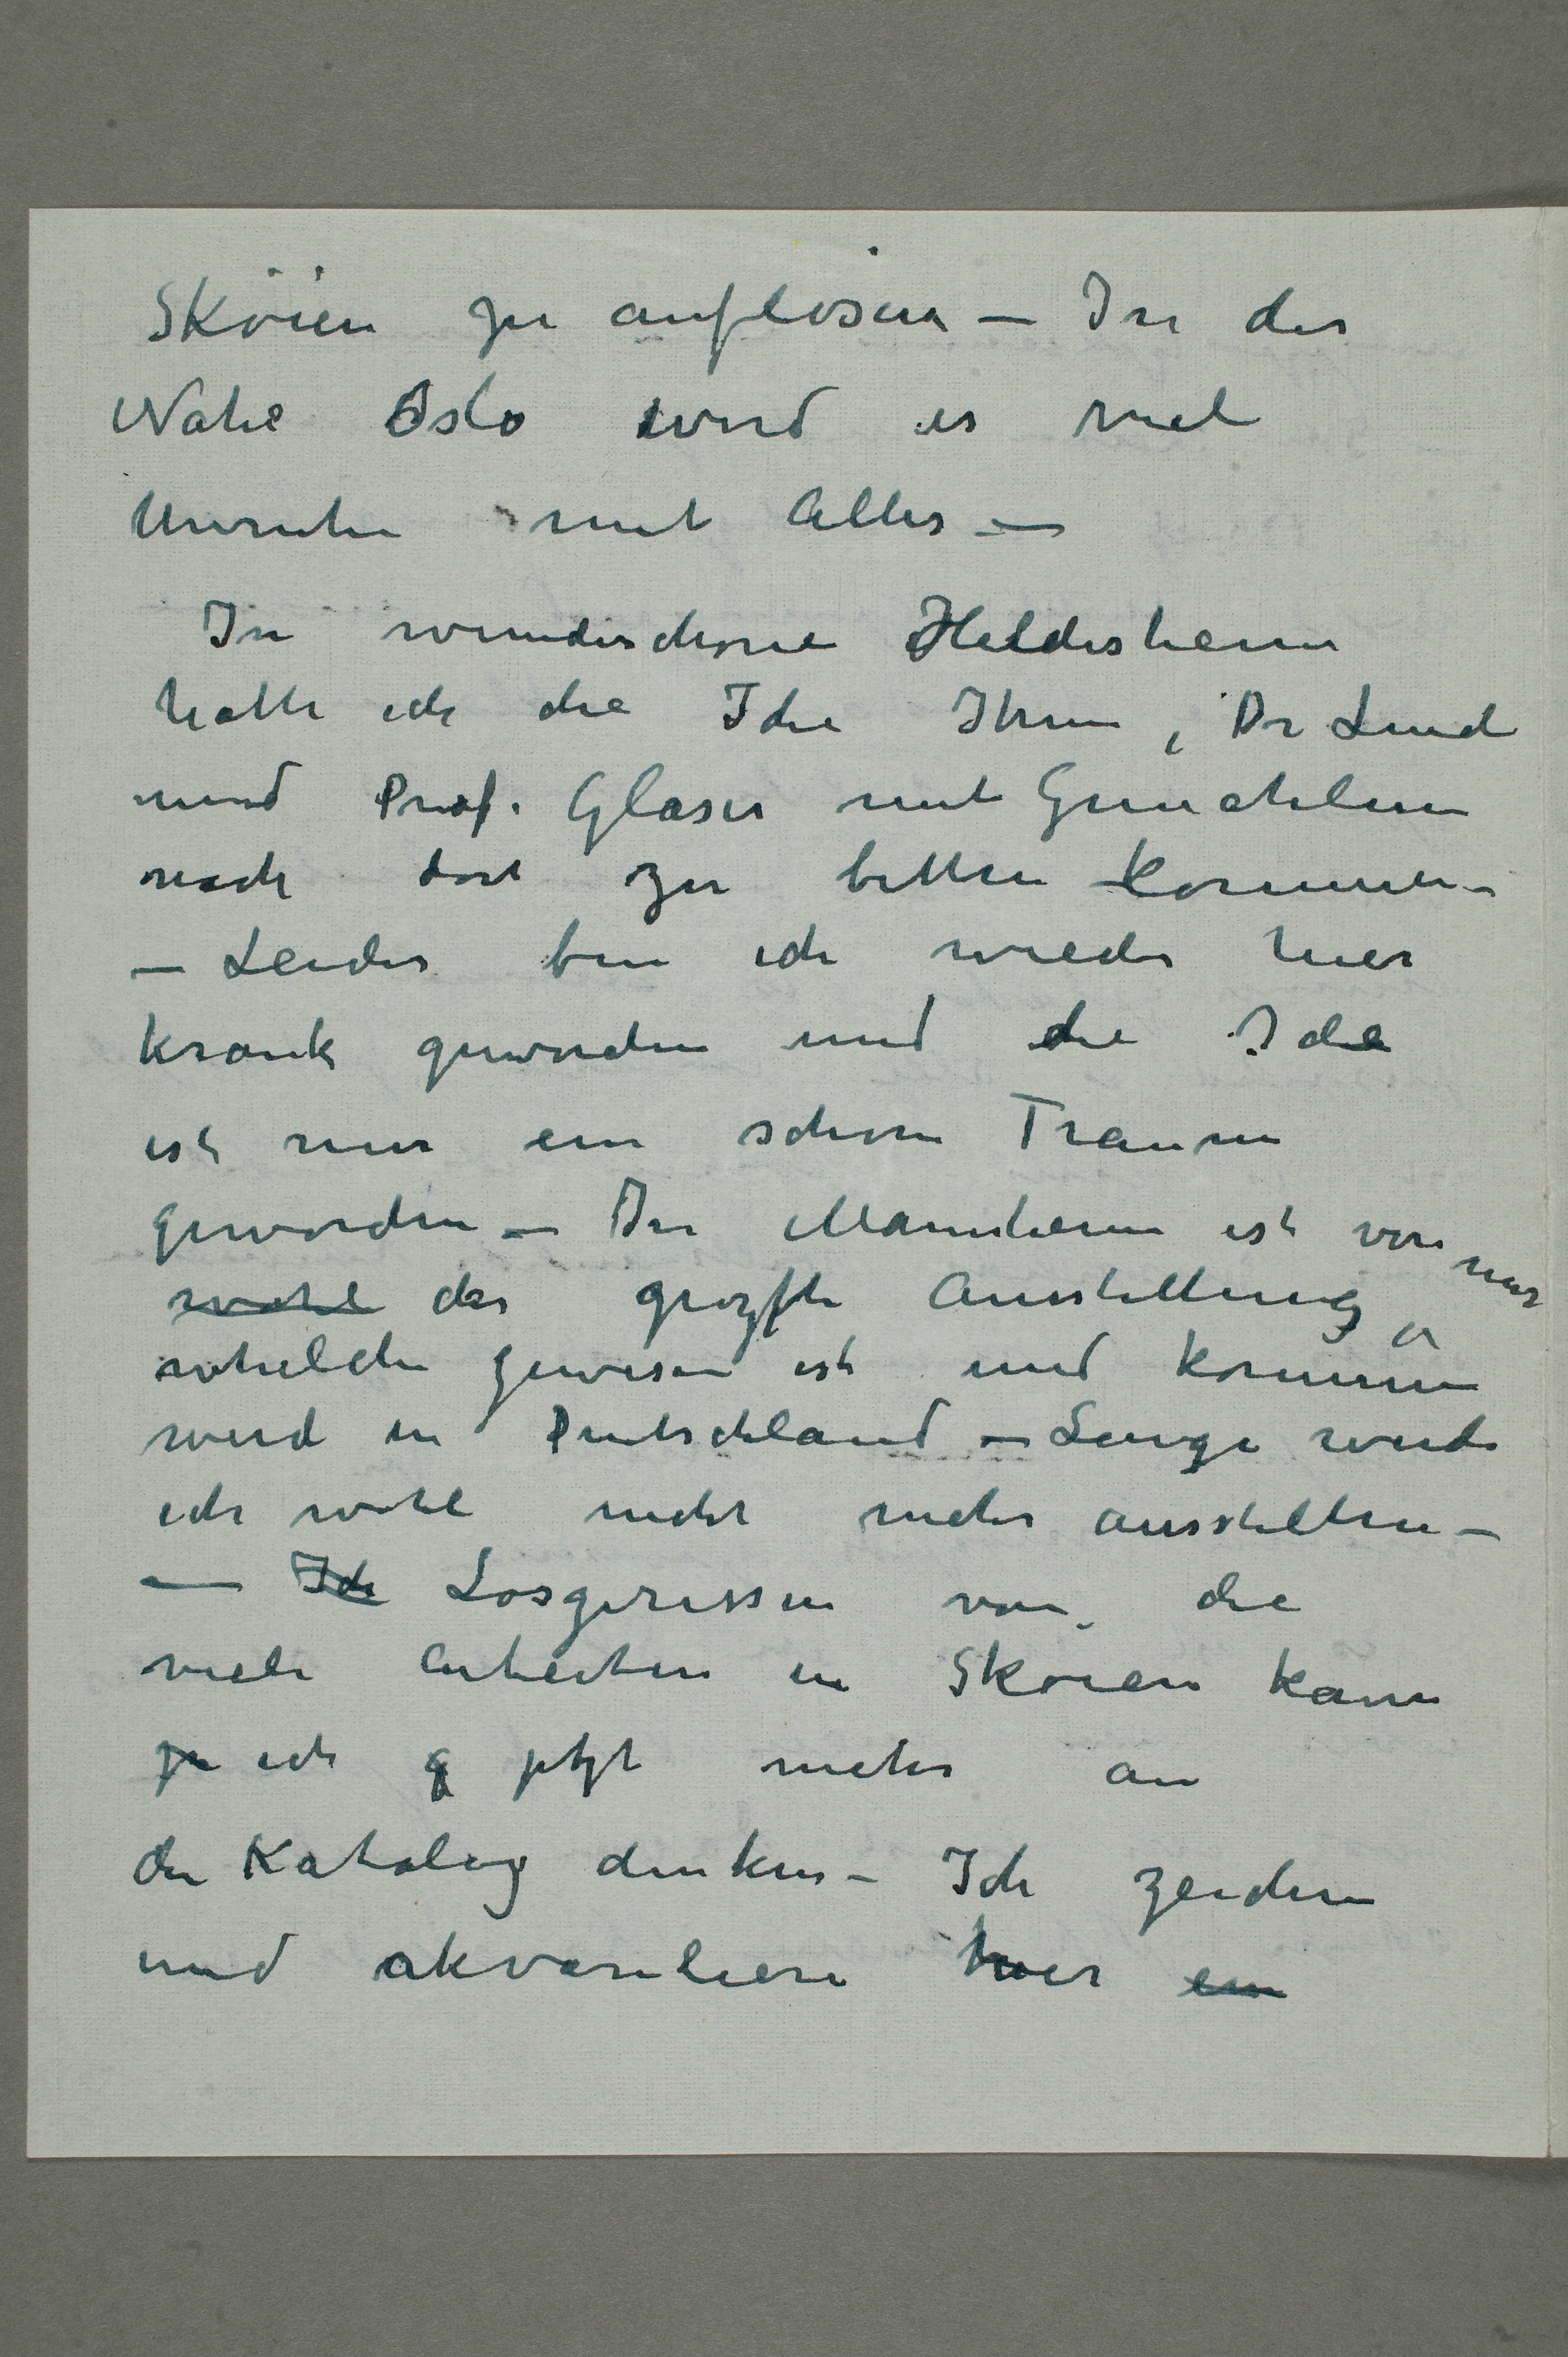 Sköien zu auflosen – In der
Nahe Oslo wird es viel
Unruhe mit Alles –
In wunderschone Heldisheim
hatte ich die Ide Ihnen, Dr Lund
und Prof. Glaser mit Gemahlin
nach dort zu bitten kommen –
– Leider bin ich wieder hier
krank geworden und die Ide
ist nur ein schon Traum
geworden – In Mannheim ist von mir
wohl der grozfte Ausstellung
whelche gewesen ist und kommen
wird in Deutschland – Lange werde
ich wohl nicht mehr ausstellen –
– Ich Losgerissen von die
viele Arbeiten in Skoien kann
ich jetzt mehr an
die Katalog denken – Ich zeichne
und akvareliere hier ein